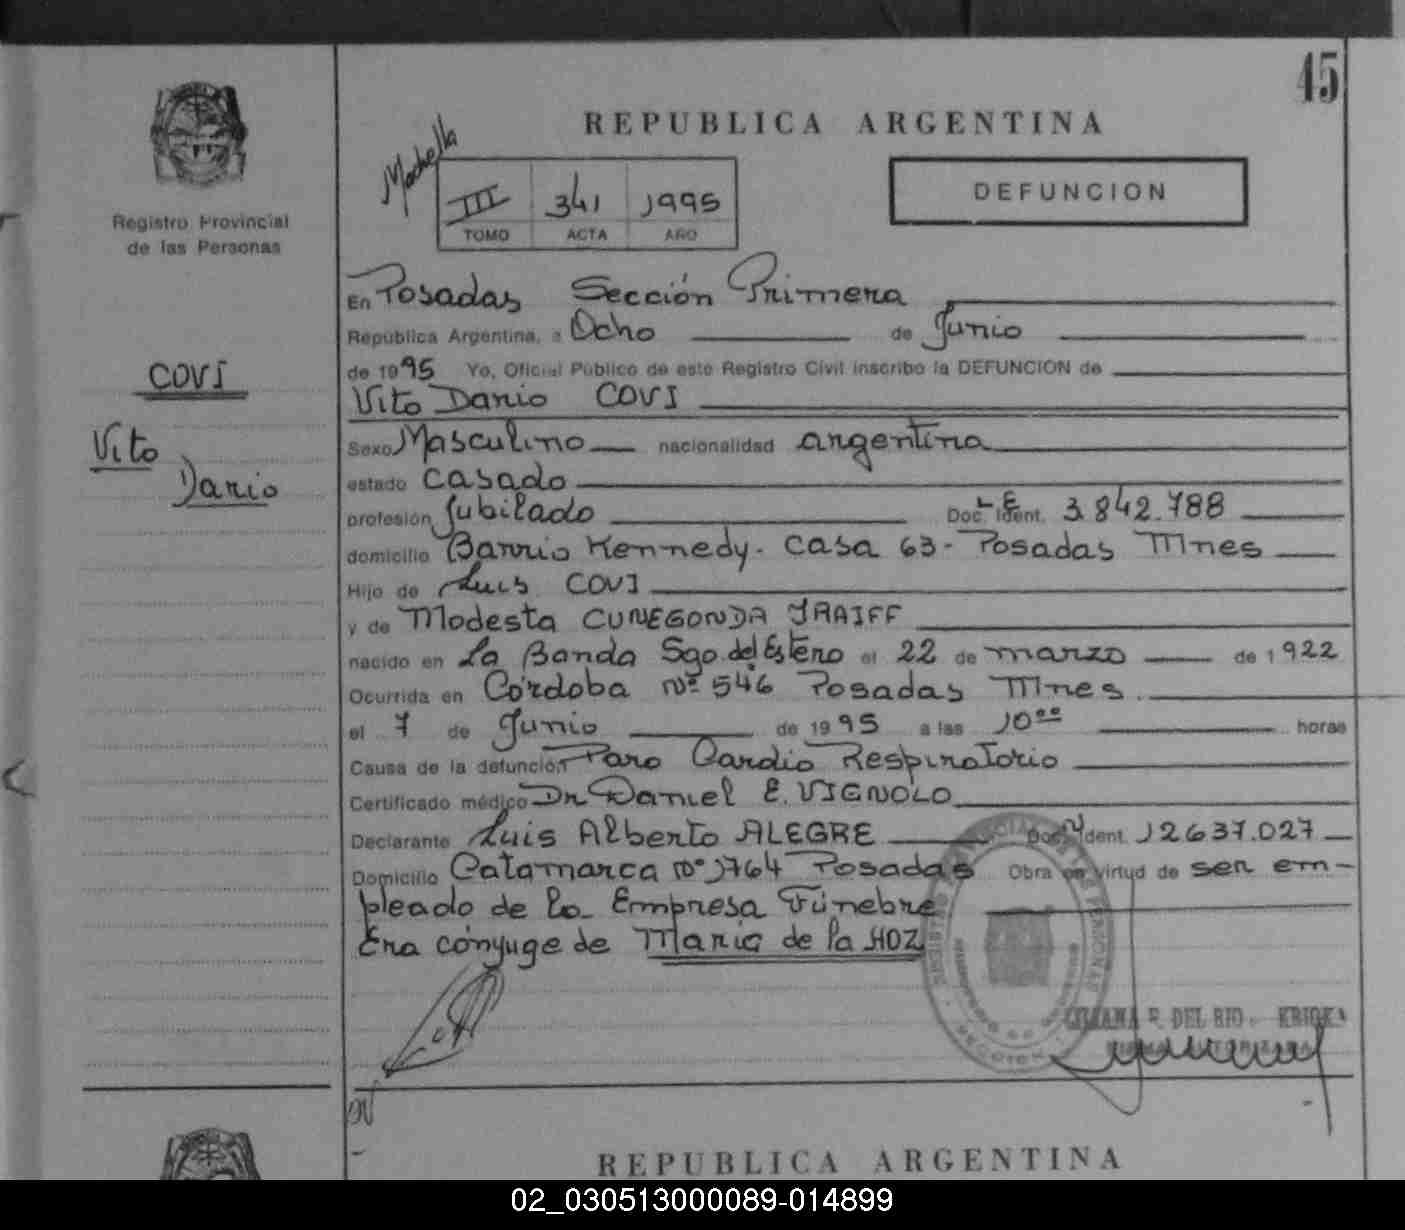 45
REPUBLICA ARGENTINA
Machella
III 341 1995
TOMO ACTA AÑO
DEFUNCION
Registro Provincial
de las Personas
COVI
Vito
Dario
En Posadas Sección Primera
República Argentina, a Ocho de Junio
de 1995 Yo, Oficial Público de este Registro Civil inscribo la DEFUNCION de
Vito Dario COVI
Sexo Masculino nacionalidad argentina
estado casado
profesión Jubilado Doc. Ident. L E 3.842.788
domicilio Barrio Kennedy. casa 63- Posadas Mnes
Hijo de Luis COVI
y de Modesta CUNEGONDA
nacido en La Banda Sgo. del Estero el 22 de marzo de 1922
Ocurrida en Córdoba Nº 546 Posadas Mnes.
el 7 de Junio de 1995 a las 10 00 horas
Causa de la defunción Paro Cardio Respiratorio
Certificado médico Dr Daniel E. VIGNOLO
Declarante Luis Alberto ALEGRE Doc. Ident. 12637.027
Domicilio Catamarca Nº 1764 Posadas Obra en virtud de ser em-
pleado de la Empresa Fúnebre
Era cónyuge de Maria de la HOZ
REGISTRO PROVINCIAL DE LAS PERSONAS
P. DEL RIO
REPUBLICA ARGENTINA
02_030513000089-014899